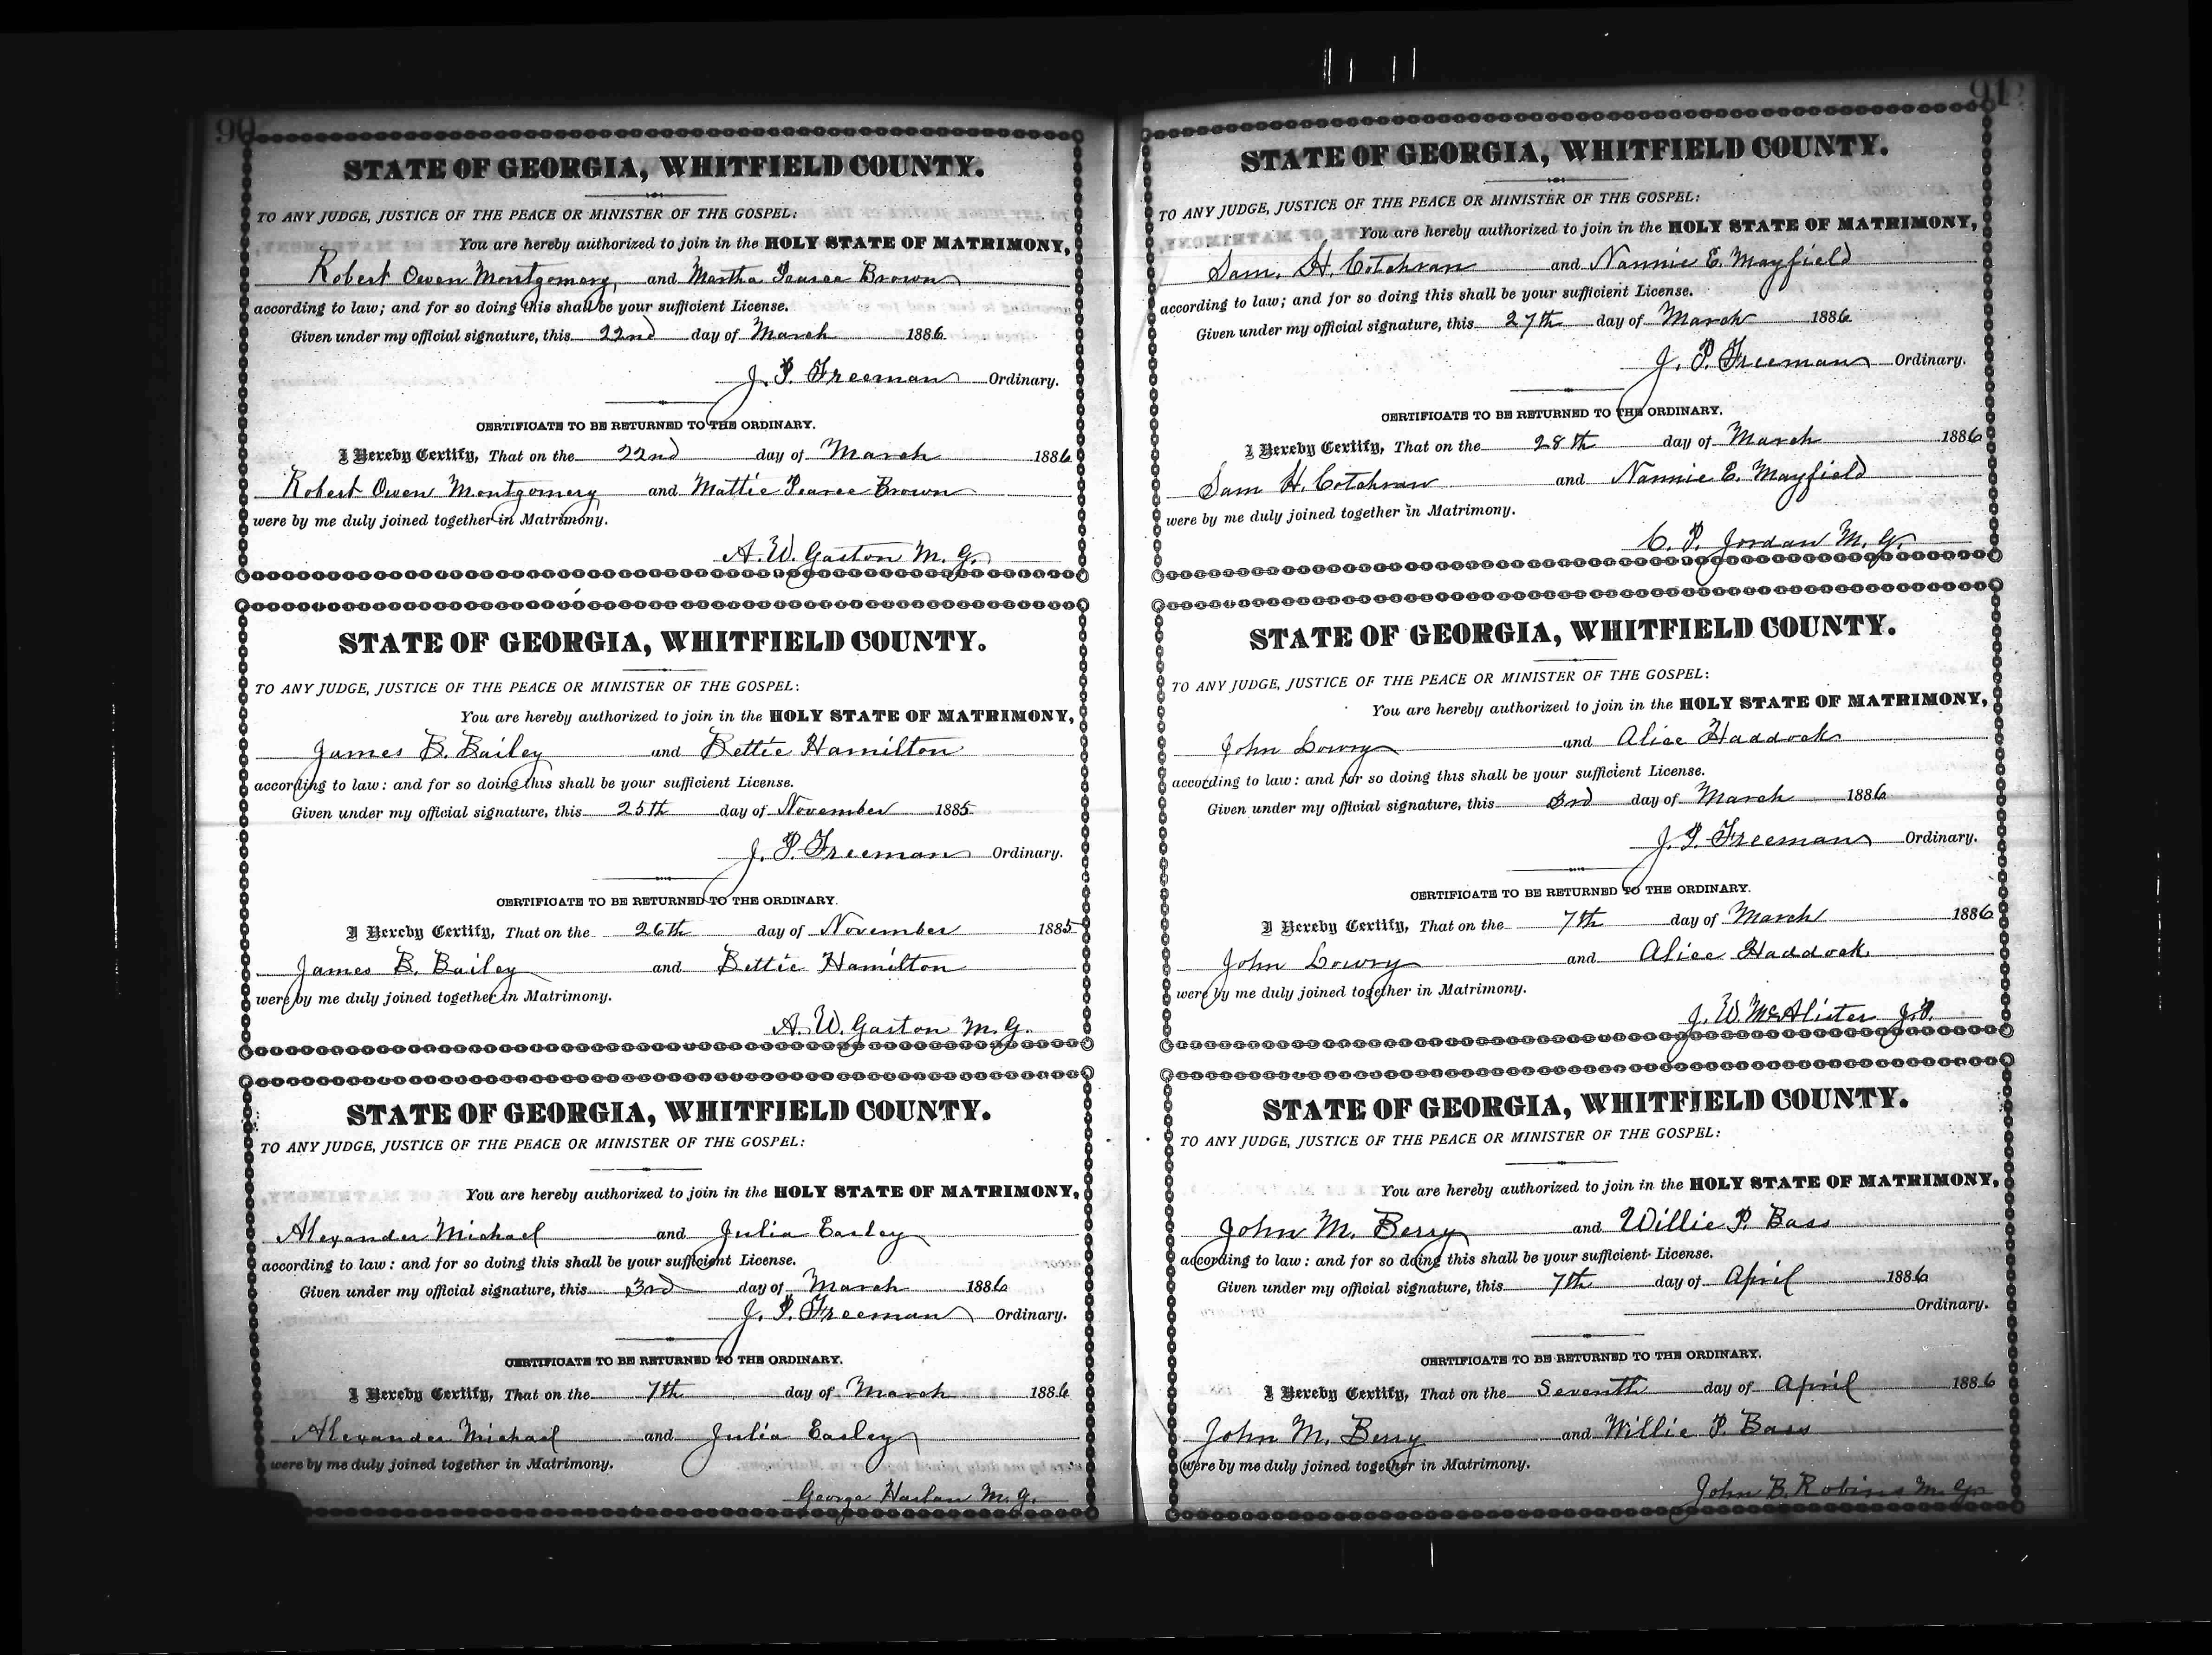 90
STATE OF GEORGIA, WHITFIELD COUNTY.
TO ANY JUDGE, JUSTICE OF THE PEACE OR MINISTER OF THE GOSPEL:
You are hereby authorized to join in the HOLY STATE OF MATRIMONY,
Robert Owen Montgomery, and Martha Pearce Brown
according to law; and for so doing this shall be your sufficient License.
Given under my official signature, this 22nd day of March 1886.
J. P. Freeman Ordinary.
CERTIFICATE TO BE RETURNED TO THE ORDINARY.
I Hereby Certify, That on the 22nd day of March 1886
Robert Owen Montgomery and Mattie Pearce Brown
were by me duly joined together in Matrimony.
A. W. Gaston M. G.
STATE OF GEORGIA, WHITFIELD COUNTY.
TO ANY JUDGE, JUSTICE OF THE PEACE OR MINISTER OF THE GOSPEL:
You are hereby authorized to join in the HOLY STATE OF MATRIMONY,
James B. Bailey and Bettie Hamilton
according to law: and for so doing this shall be your sufficient License.
Given under my official signature, this 25th day of November 1885
J. P. Freeman Ordinary.
CERTIFICATE TO BE RETURNED TO THE ORDINARY.
I Hereby Certify, That on the 26th day of November 1885
James B. Bailey and Bettie Hamilton
were by me duly joined together in Matrimony.
A. W. Gaston M. G.
STATE OF GEORGIA, WHITFIELD COUNTY.
TO ANY JUDGE, JUSTICE OF THE PEACE OR MINISTER OF THE GOSPEL:
You are hereby authorized to join in the HOLY STATE OF MATRIMONY,
Alexander Michael and Julia Easley
according to law: and for so doing this shall be your sufficient License.
Given under my official signature, this 3rd day of March 1886
J. P. Freeman Ordinary.
CERTIFICATE TO BE RETURNED TO THE ORDINARY.
I Hereby Certify, That on the 7th day of March 1886
Alexander Michael and Julia Easley
were by me duly joined together in Matrimony.
George Harlan M. G.
91
STATE OF GEORGIA, WHITFIELD COUNTY.
TO ANY JUDGE, JUSTICE OF THE PEACE OR MINISTER OF THE GOSPEL:
You are hereby authorized to join in the HOLY STATE OF MATRIMONY,
Sam. H. Cotchran and Nannie E. Mayfield
according to law; and for so doing this shall be your sufficient License.
Given under my official signature, this 27th day of March 1886
J. P. Freeman Ordinary.
CERTIFICATE TO BE RETURNED TO THE ORDINARY.
I Hereby Certify, That on the 28th day of March 1886
Sam H. Cotchran and Nannie E. Mayfield
were by me duly joined together in Matrimony.
C. P. Jordan M. G.
STATE OF GEORGIA, WHITFIELD COUNTY.
TO ANY JUDGE, JUSTICE OF THE PEACE OR MINISTER OF THE GOSPEL:
You are hereby authorized to join in the HOLY STATE OF MATRIMONY,
John Lowry and Alice Haddock
according to law: and for so doing this shall be your sufficient License.
Given under my official signature, this 3rd day of March 1886
J. P. Freeman Ordinary.
CERTIFICATE TO BE RETURNED TO THE ORDINARY.
I Hereby Certify, That on the 7th day of March 1886
John Lowry and Alice Haddock
were by me duly joined together in Matrimony.
J. W. McAlister J. P.
STATE OF GEORGIA, WHITFIELD COUNTY.
TO ANY JUDGE, JUSTICE OF THE PEACE OR MINISTER OF THE GOSPEL:
You are hereby authorized to join in the HOLY STATE OF MATRIMONY,
John M. Berry and Willie P. Bass
according to law: and for so doing this shall be your sufficient License.
Given under my official signature, this 7th day of April 1886
Ordinary.
CERTIFICATE TO BE RETURNED TO THE ORDINARY.
I Hereby Certify, That on the Seventh day of April 1886
John M. Berry and Willie P. Bass
were by me duly joined together in Matrimony.
John B. Robins M. G.